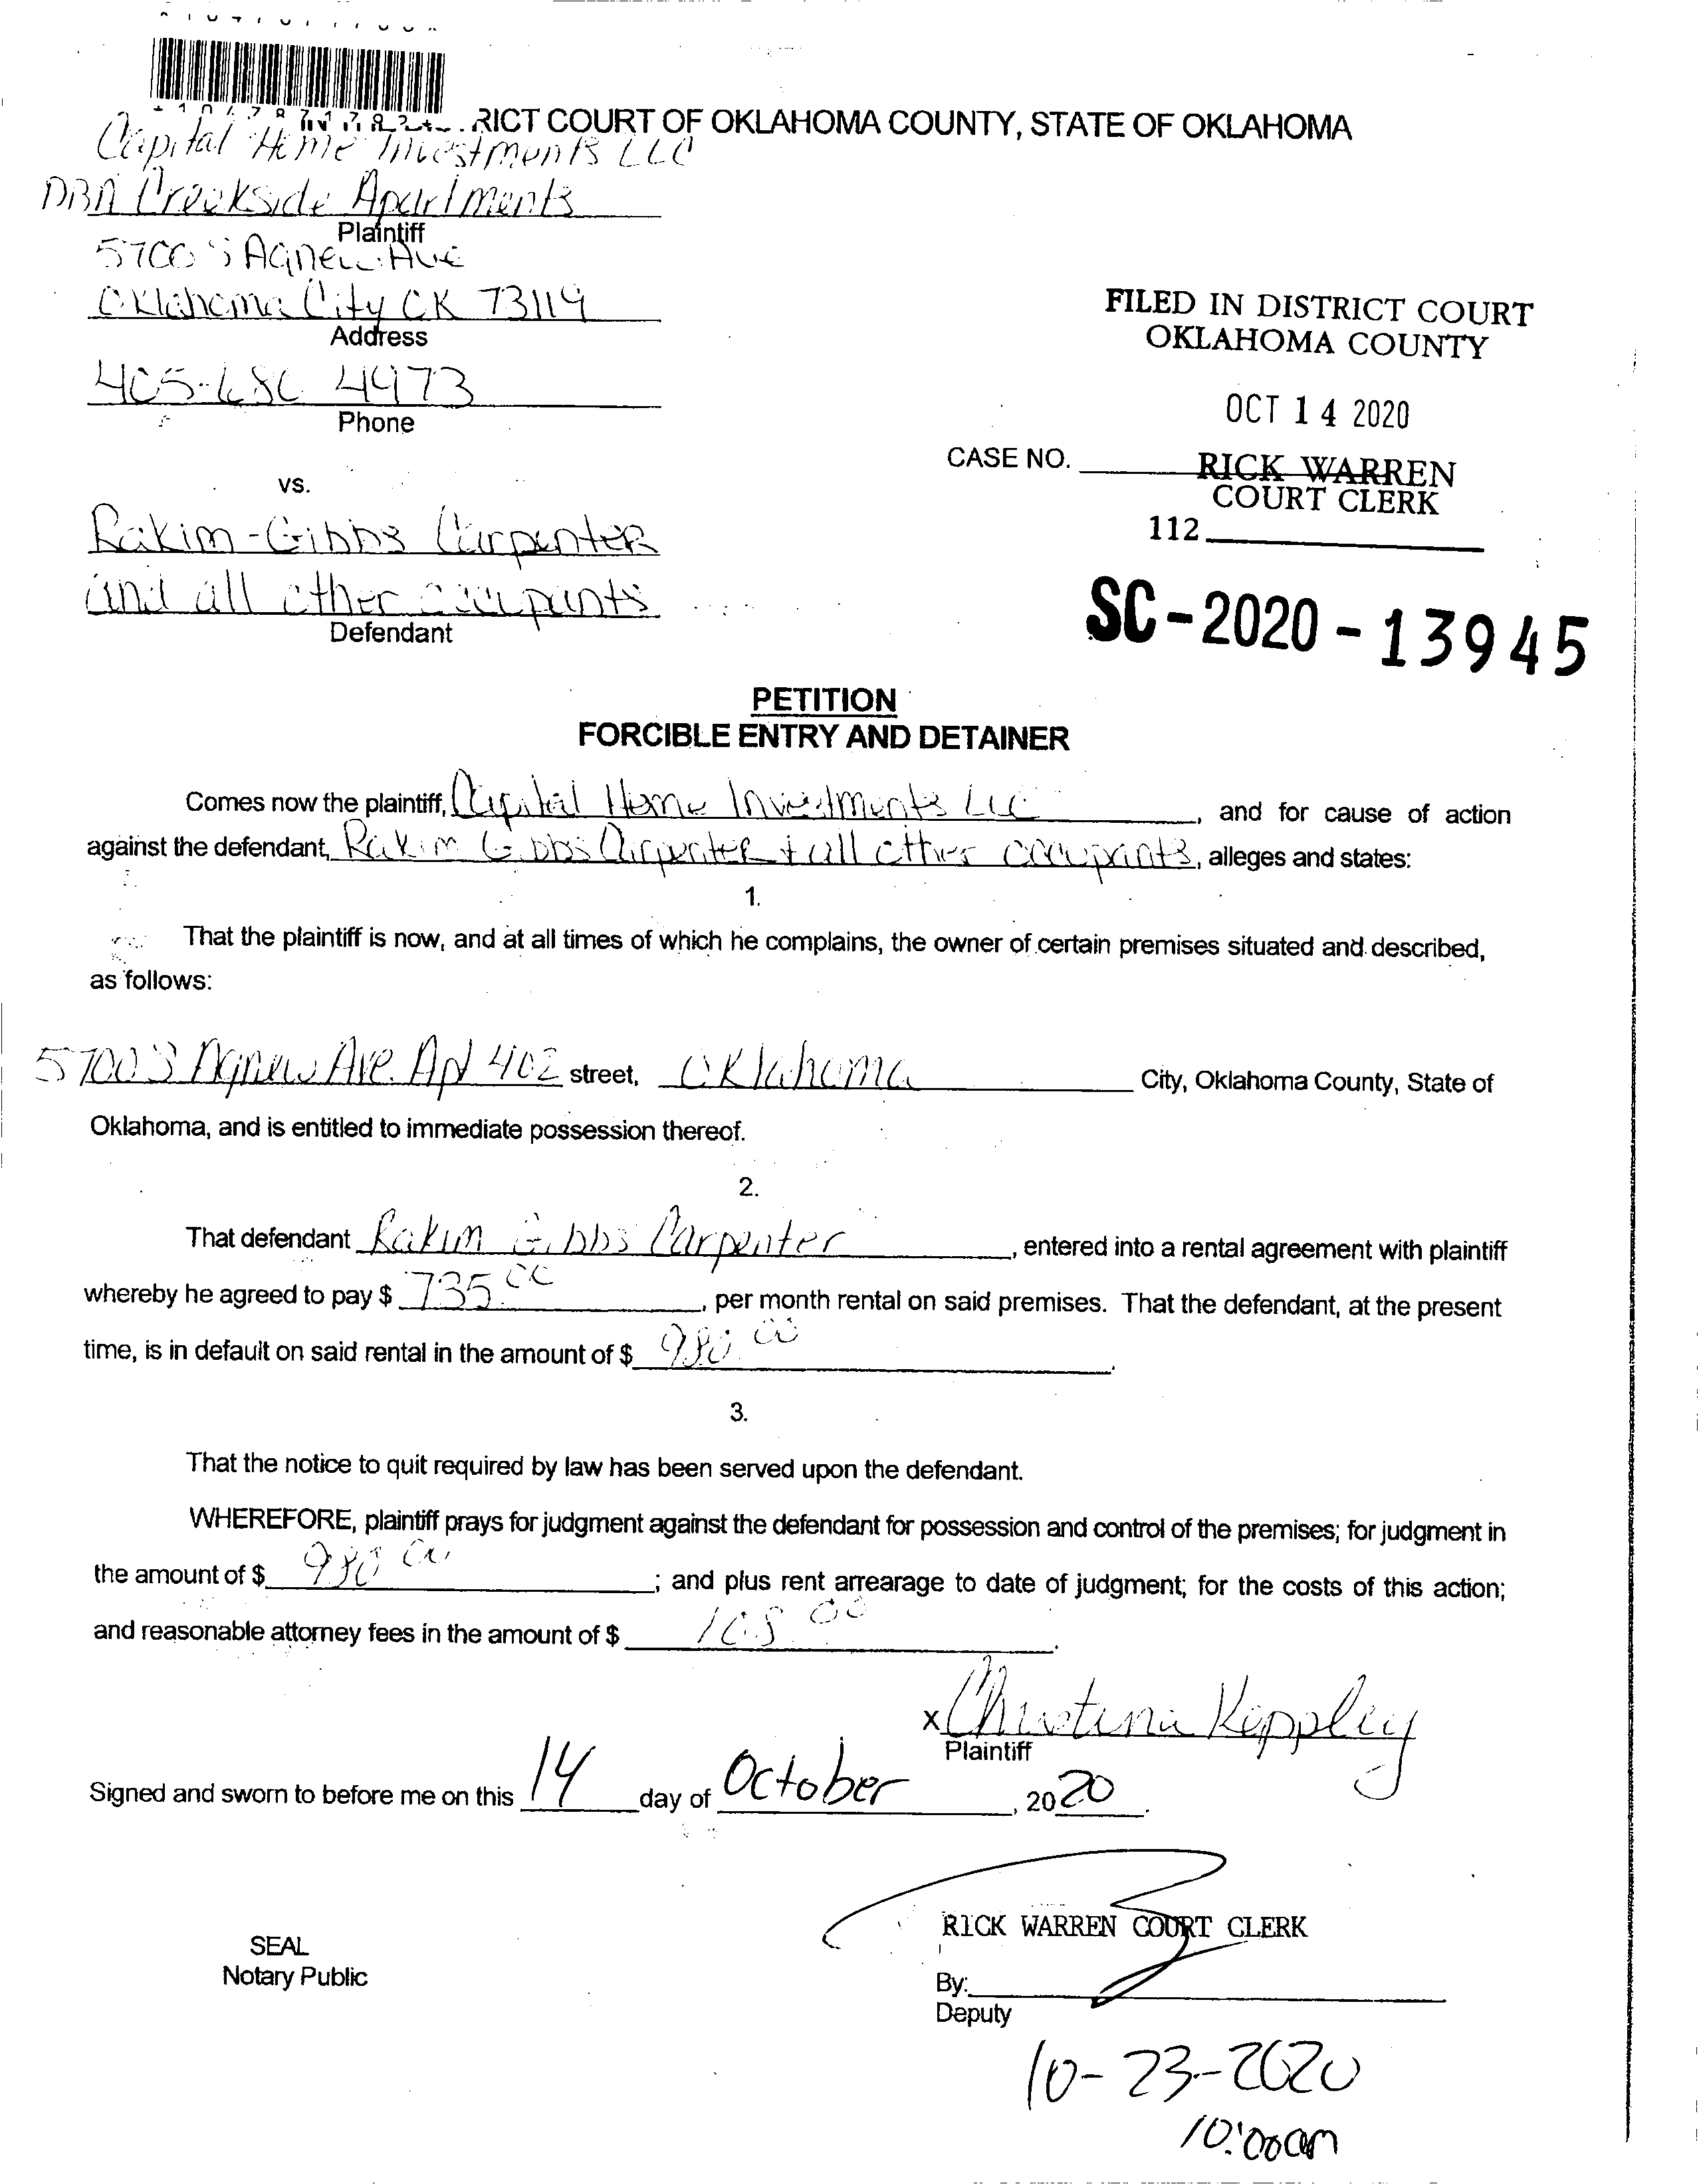 RICT COURT OF OKLAHOMA COUNTY, STATE OF OKLAHOMA
Capital Home Investments LLC
DBA Creekside Apartments
Plaintiff
5700 S Agnew Ave
Oklahoma City OK 73119
Address
4973
Phone
FILED IN DISTRICT COURT
OKLAHOMA COUNTY
OCT 14 2020
CASE NO.
RICK WARREN
COURT CLERK
112
vs.
Rakim-Gibbs Carpenter
and all other occupants
Defendant
SC-2020-13945
PETITION
FORCIBLE ENTRY AND DETAINER
Comes now the plaintiff, Capital Home Investments LLC, and for cause of action
against the defendant, Rakim Gibbs Carpenter + all other occupants, alleges and states:
1.
That the plaintiff is now, and at all times of which he complains, the owner of certain premises situated and described,
as follows:
5700 S Agnew Ave. Apt 402 street, Oklahoma City, Oklahoma County, State of
Oklahoma, and is entitled to immediate possession thereof.
2.
That defendant Rakim Gibbs Carpenter, entered into a rental agreement with plaintiff
whereby he agreed to pay $ 735.00, per month rental on said premises. That the defendant, at the present
time, is in default on said rental in the amount of $ 980.00.
3.
That the notice to quit required by law has been served upon the defendant.
WHEREFORE, plaintiff prays for judgment against the defendant for possession and control of the premises; for judgment in
the amount of $ 980.00; and plus rent arrearage to date of judgment; for the costs of this action;
and reasonable attorney fees in the amount of $
x Christina Keppley
Plaintiff
Signed and sworn to before me on this 14 day of October, 2020.
RICK WARREN COURT CLERK
SEAL
Notary Public
By:
Deputy
10-23-2020
10:00am